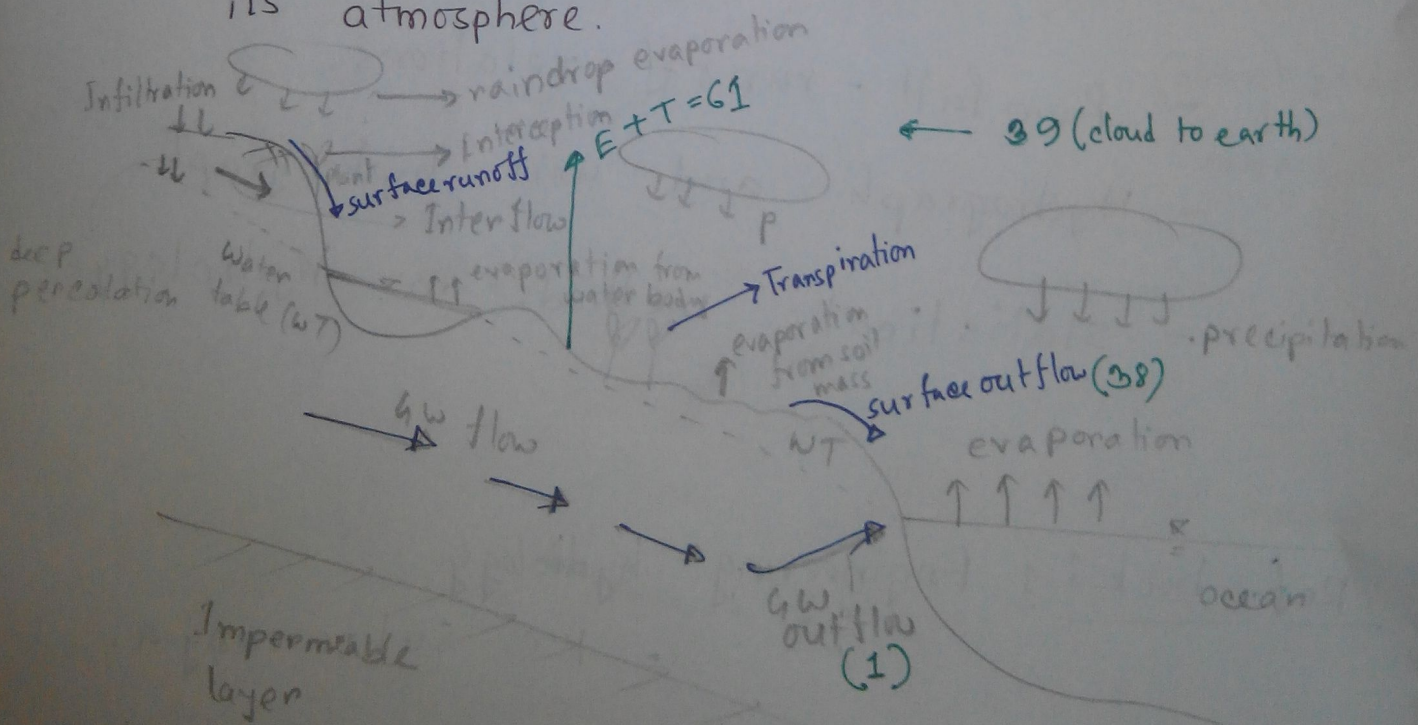 its atmosphere.
Infiltration
raindrop evaporation
Interception
E + T = 61
39 (cloud to earth)
surface runoff
Interflow
P
deep
percolation
Water
table (WT)
evaporation from
water body
Transpiration
evaporation
from soil
mass
precipitation
surface outflow (38)
GW flow
WT
evaporation
ocean
GW
outflow
(1)
Impermeable
layer